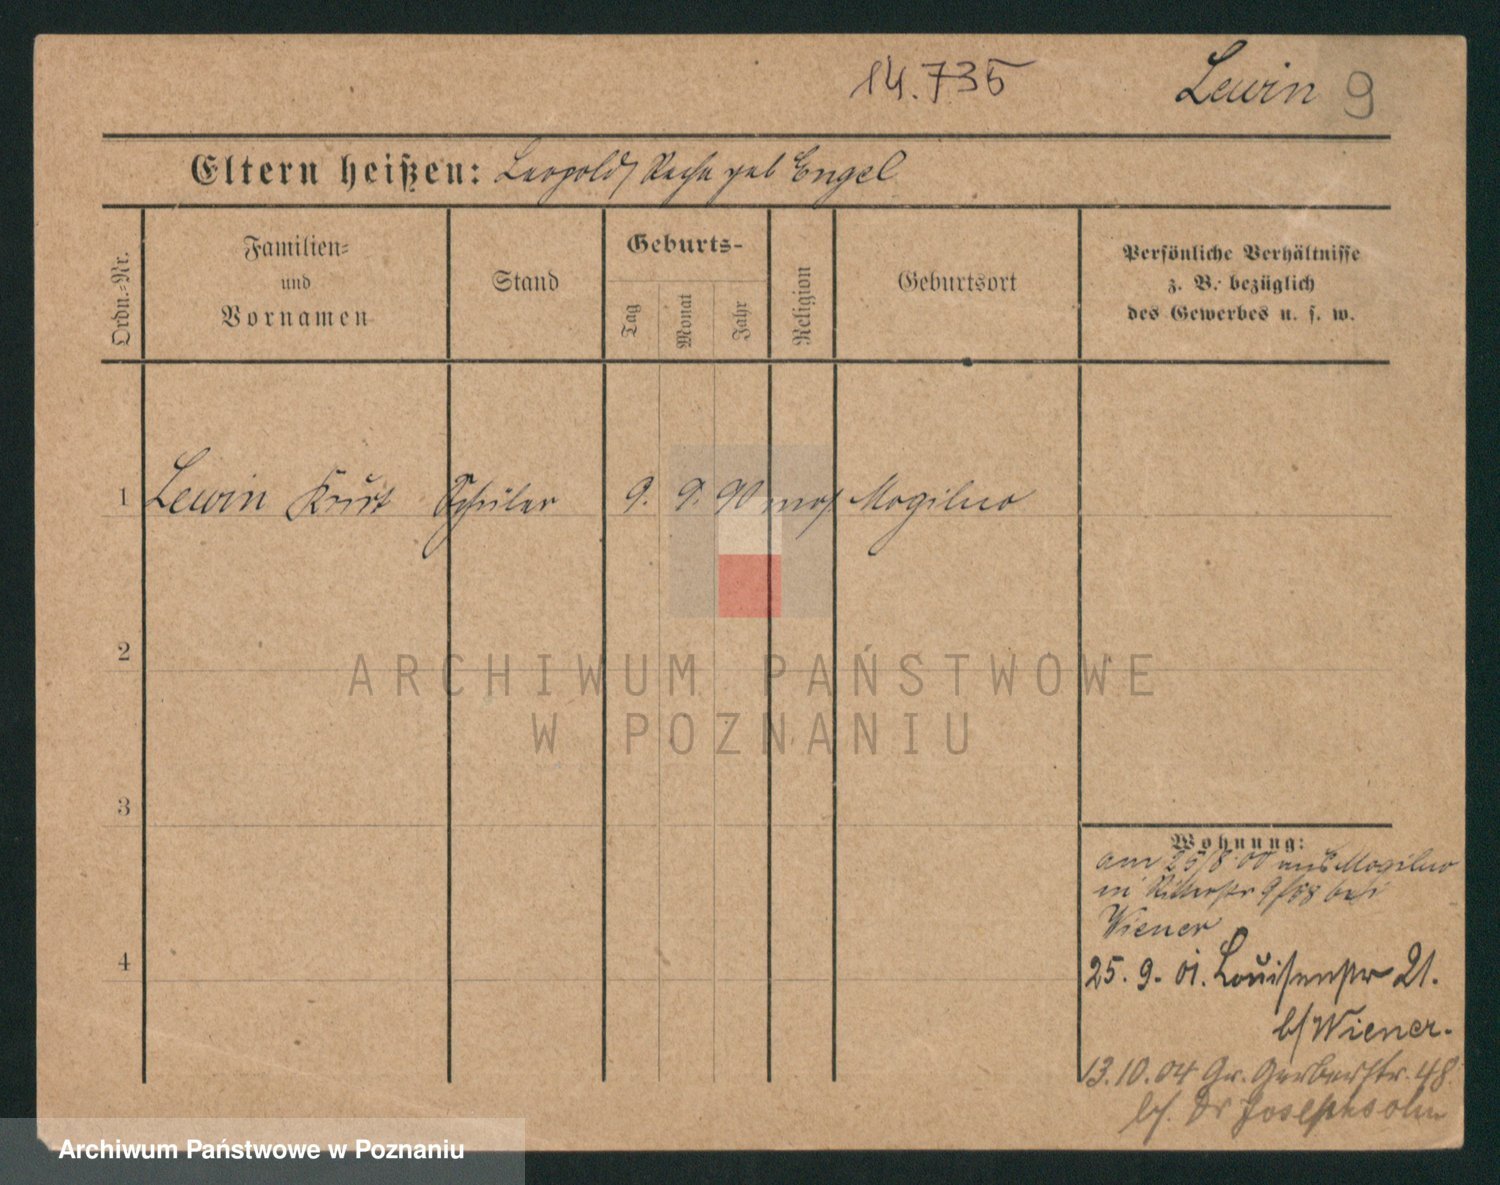 14.735
Lewin 9
Eltern heißen: Leopold, geb Engel
Ordn.-Nr.
Familien-
und
Vornamen
Stand
Geburts-
Tag
Monat
Jahr
Religion
Geburtsort
Persönliche Verhältnisse
z. B. bezüglich
des Gewerbes u. s. w.
1 Lewin Kurt Schüler 9. 9. 90 mos. Mogilno
2
ARCHIWUM PAŃSTWOWE
W POZNANIU
3
Wohnung:
am 25/8 00 aus Mogilno
in Ritterstr 9/ bei
Wiener
4
25. 9. 01. Louisenstr 21.
b/ Wiener.
13.10.04 Gr. Gerberstr. 48.
bf. Dr Josephsohn
Archiwum Państwowe w Poznaniu